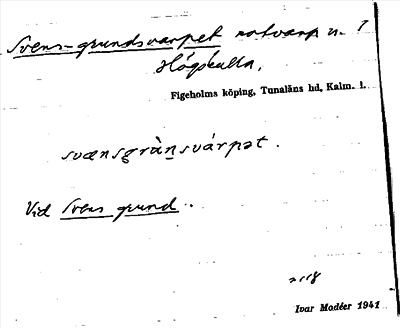 Svens-grundsvarpet notvarp n. 1
Högskulla.
Figeholms köping, Tunaläns hd, Kalm. l.
svænsgrànsvárpət.
Vid Svens grund.
Ivar Modéer 1941